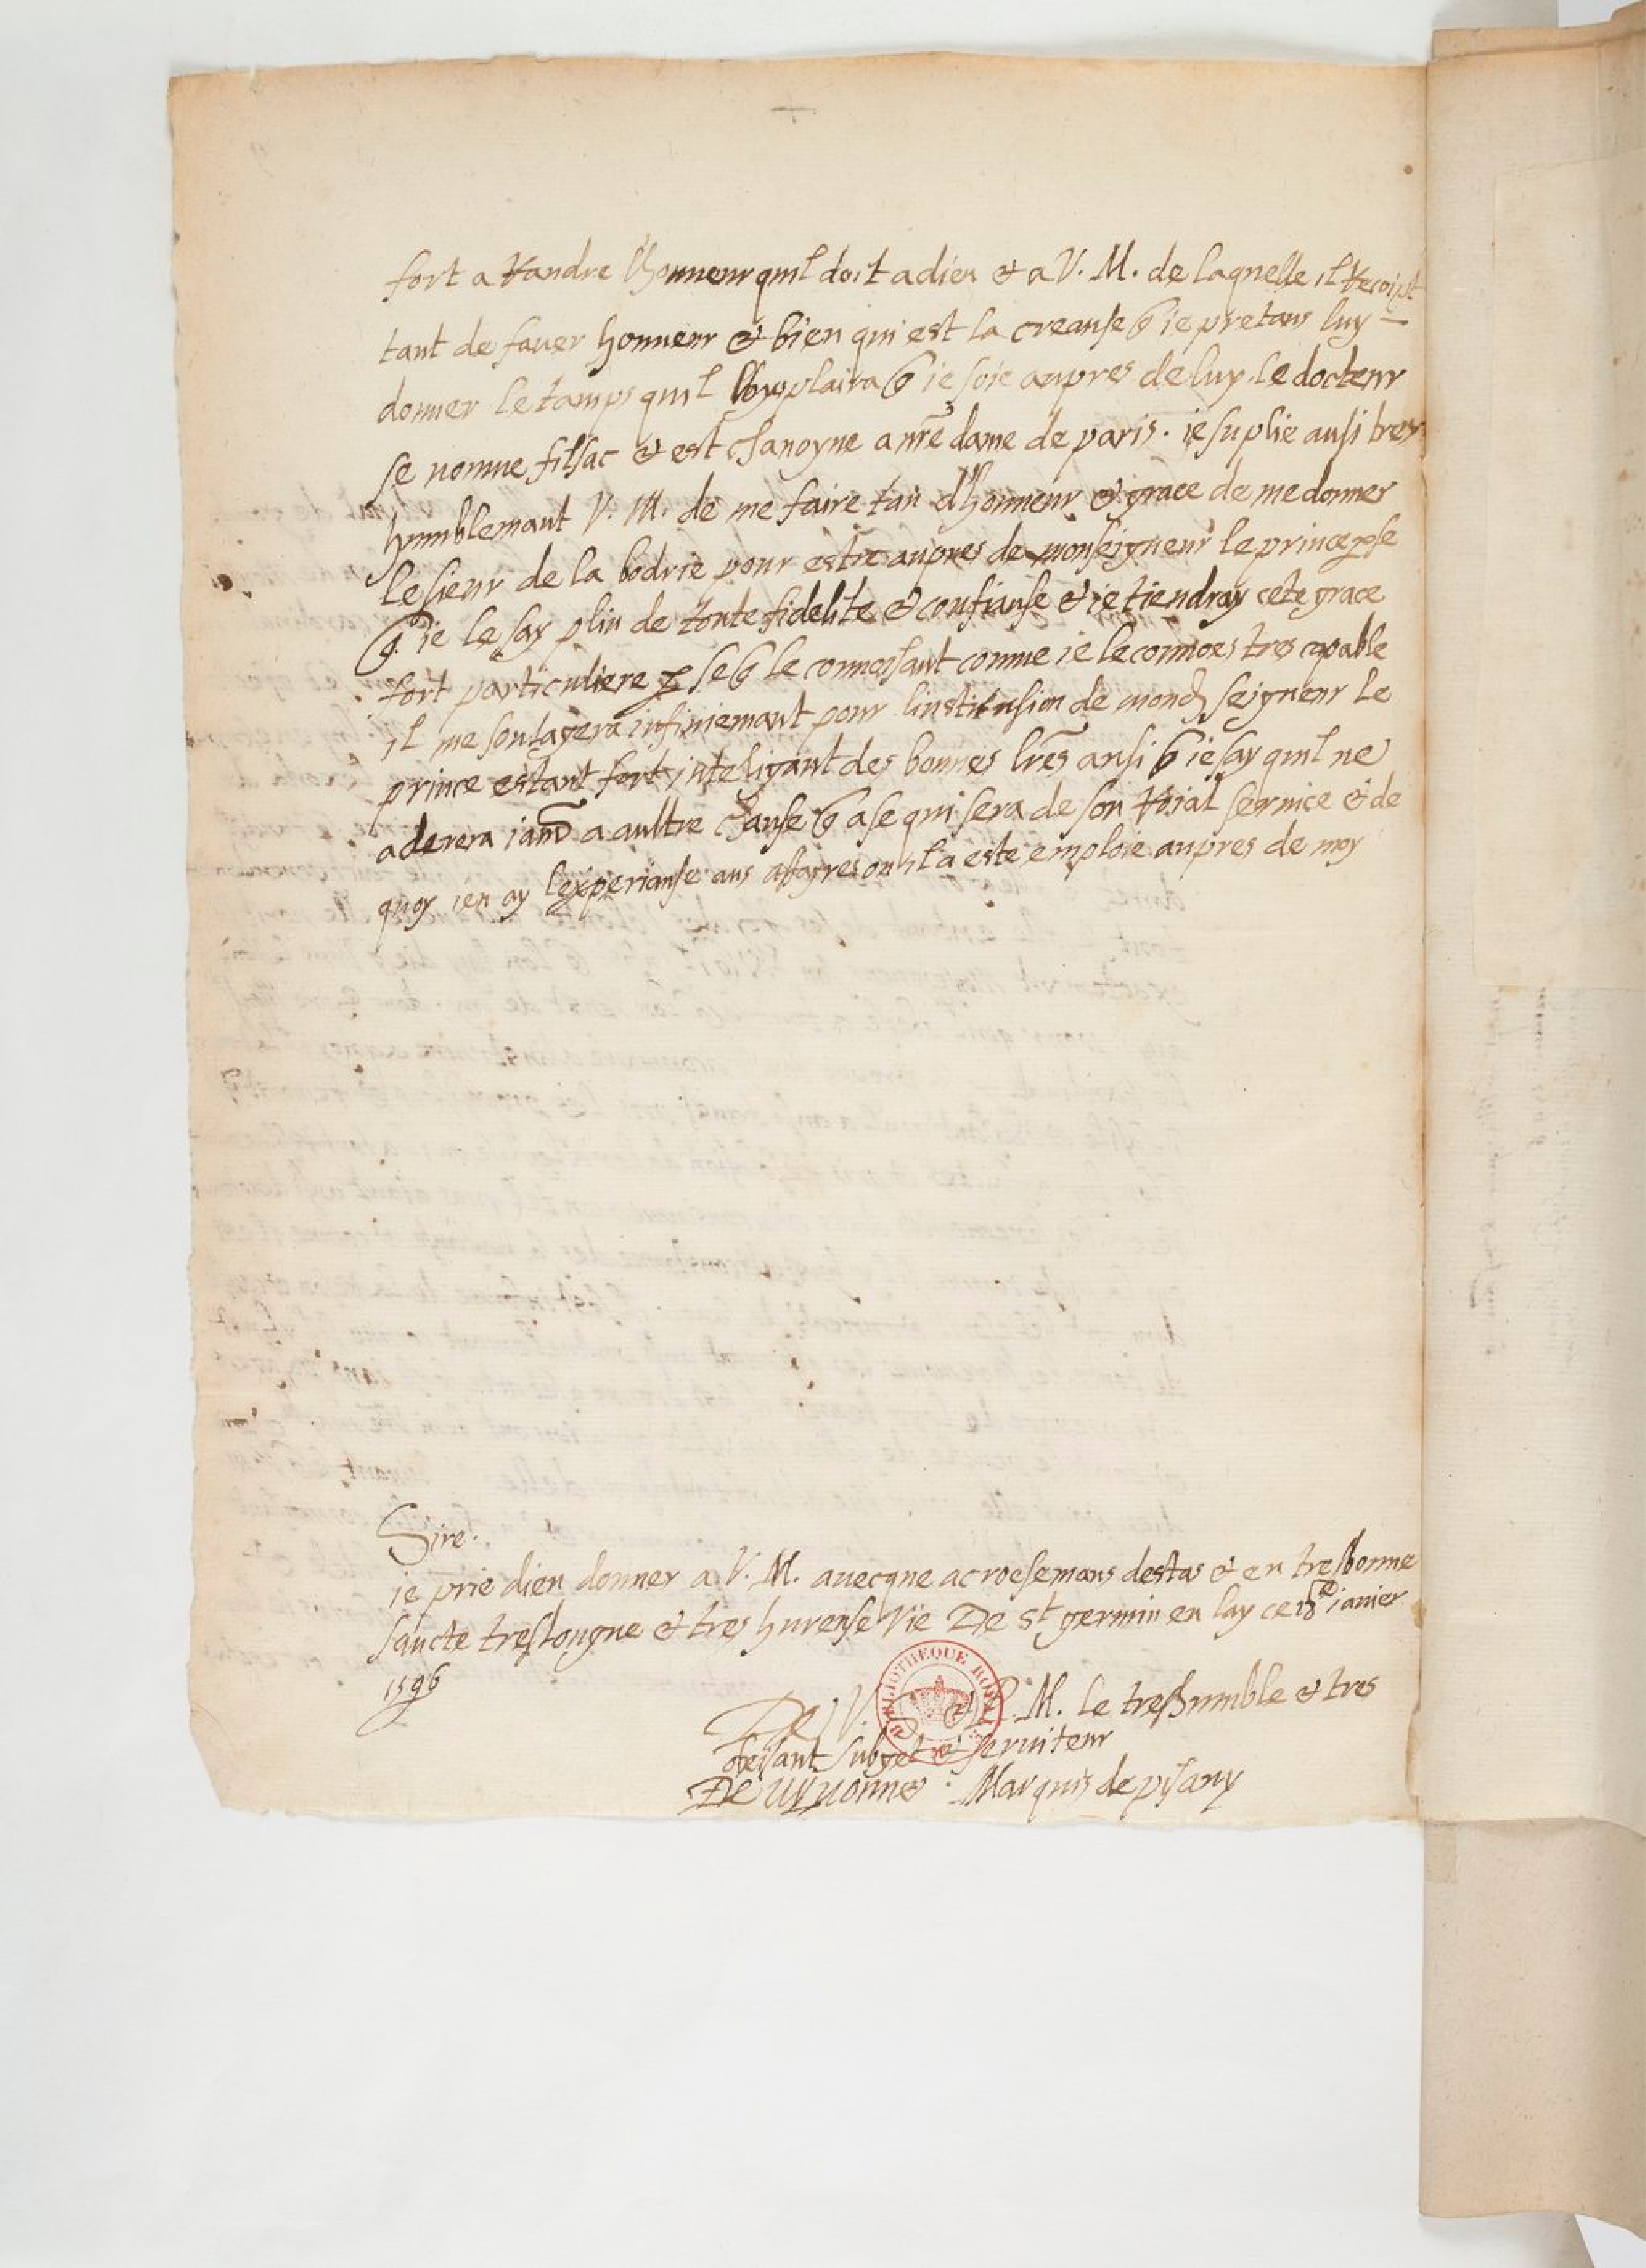 fort a Randre lhonneur quil doit a dieu & a V. M. de laquelle il Resoipt
tant de faver honneur & bien qui est la creanse q ie pretans luy
donner le tamps quil luy plaira q ie soie aupres de luy. le docteur
se nomme filsac & est chanoyne a nre dame de paris. ie suplie ausi tres
humblemant V. M. de me faire tan d'honneur & grace de me donner
le sieur de la bodrie pour estre aupres de monseigneur le prince p se
q. ie le say plin de toute fidelite & confianse & ie tiendray cete grace
fort particuliere p se q le connoisant comme ie le connoes tres capable
il me soulagera infiniemant pour linstitusion de mond seigneur le
prince estant fort inteligant des bonnes lres ausi q ie say quil ne
aderera iams a aultre chause q a se qui sera de son Roial seruice & de
quoy ien ay lexperianse aus afayres ou il a este emploie aupres de moy
Sire.
ie prie dieu donner a V. M. auecque acroesemans destas & en tresbonne
sancte treslongue & tres hureuse vie De st germin en lay ce 18e ianier
1596
De V. M. le tres humble & tres
obeisant subget & seruiteur
De Vyuonne Marquis de pysany
BIBLIOTHEQUE ROYALE